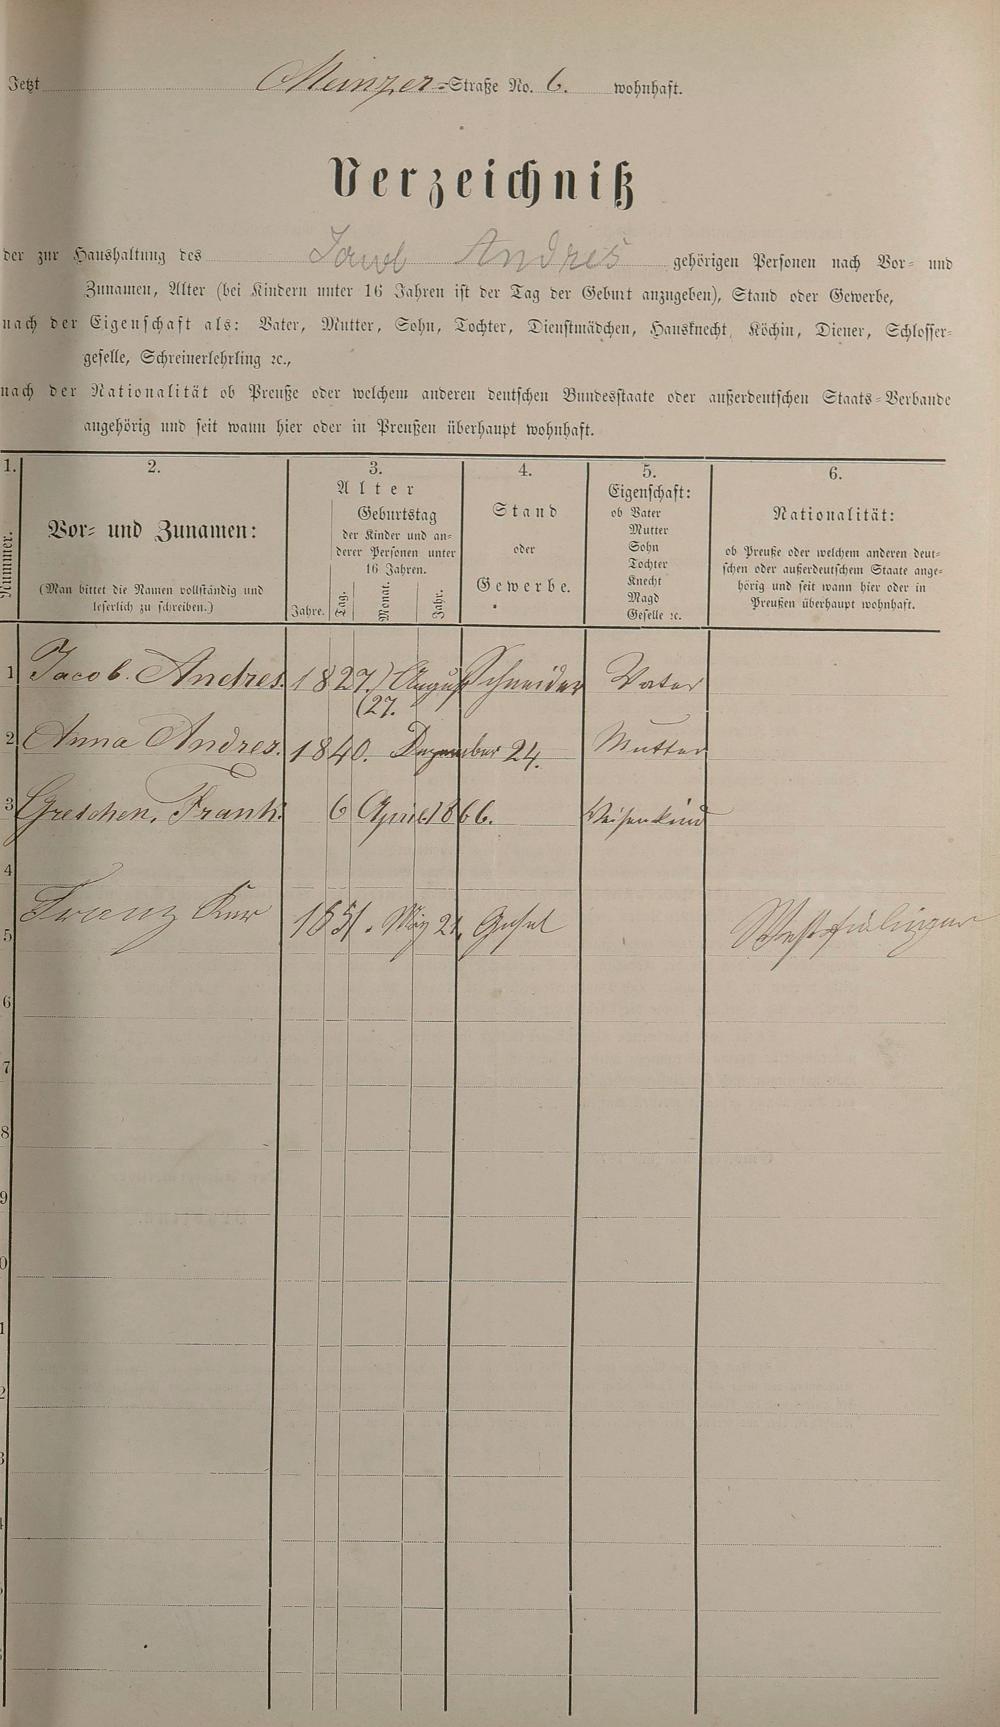 Jetzt Meinzer-Straße No. 6. wohnhaft.
Verzeichniß
der zur Haushaltung des Jacob Andres gehörigen Personen nach Vor- und
Zunamen, Alter (bei Kindern unter 16 Jahren ist der Tag der Geburt anzugeben), Stand oder Gewerbe,
nach der Eigenschaft als: Vater, Mutter, Sohn, Tochter, Dienstmädchen, Hausknecht, Köchin, Diener, Schlosser-
geselle, Schreinerlehrling ꝛc.,
nach der Nationalität ob Preuße oder welchem anderen deutschen Bundesstaate oder außerdeutschen Staats-Verbande
angehörig und seit wann hier oder in Preußen überhaupt wohnhaft.
1. 2. 3. 4. 5. 6.
Nummer.
Vor- und Zunamen:
(Man bittet die Namen vollständig und
leserlich zu schreiben.)
Alter
Geburtstag
der Kinder und an-
derer Personen unter
16 Jahren.
Jahre. Tag. Monat. Jahr.
Stand
oder
Gewerbe.
Eigenschaft:
ob Vater
Mutter
Sohn
Tochter
Knecht
Magd
Geselle ꝛc.
Nationalität:
ob Preuße oder welchem anderen deut-
schen oder außerdeutschem Staate ange-
hörig und seit wann hier oder in
Preußen überhaupt wohnhaft.
1 Jacob. Andres. 1827) August Schneider Vater
(27.
2 Anna Andres. 1840. Dezember 24. Mutter
3 Gretchen, Frank. 6 April 1866. Waisenkind
4
Franz 1851. May 21. Gesel Westfälinger
5
6
7
8
9
0
1
2
3